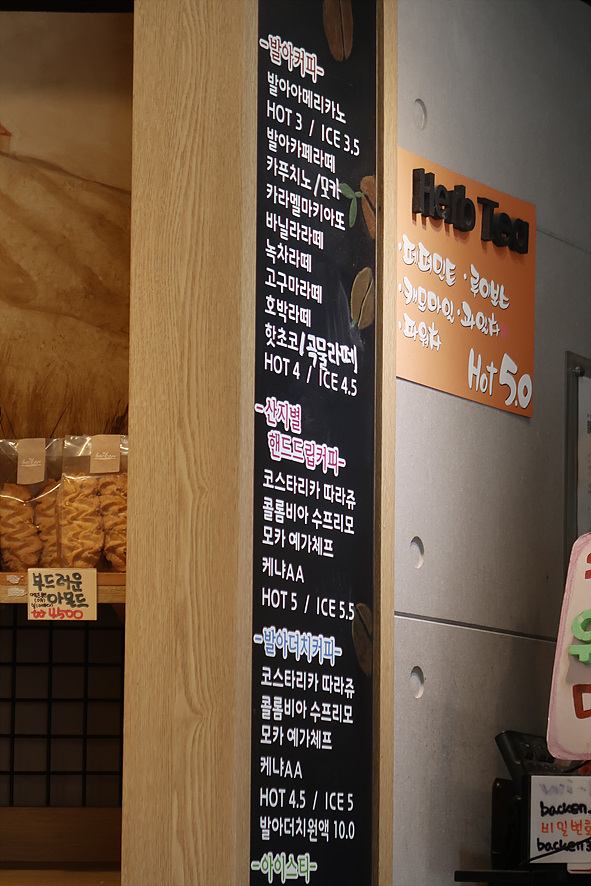 -발아커피-
발아아메리카노
HOT 3 / ICE 3.5
발아카페라떼
카푸치노/모카
카라멜마키아또
바닐라라떼
녹차라떼
고구마라떼
호박라떼
핫초코/곡물라떼
HOT 4 / ICE 4.5
-산지별
핸드드립커피-
코스타리카 따라쥬
콜롬비아 수프리모
모카 예가체프
케냐AA
HOT 5 / ICE 5.5
-발아더치커피-
코스타리카 따라쥬
콜롬비아 수프리모
모카 예가체프
케냐AA
HOT 4.5 / ICE 5
발아더치원액 10.0
-아이스티-
Herb Tea
·페퍼민트 ·루이보스
·캐모마일 ·과일차
·파워차
Hot 5.0
부드러운
아몬드
₩4500
backen
비밀번호
backen3